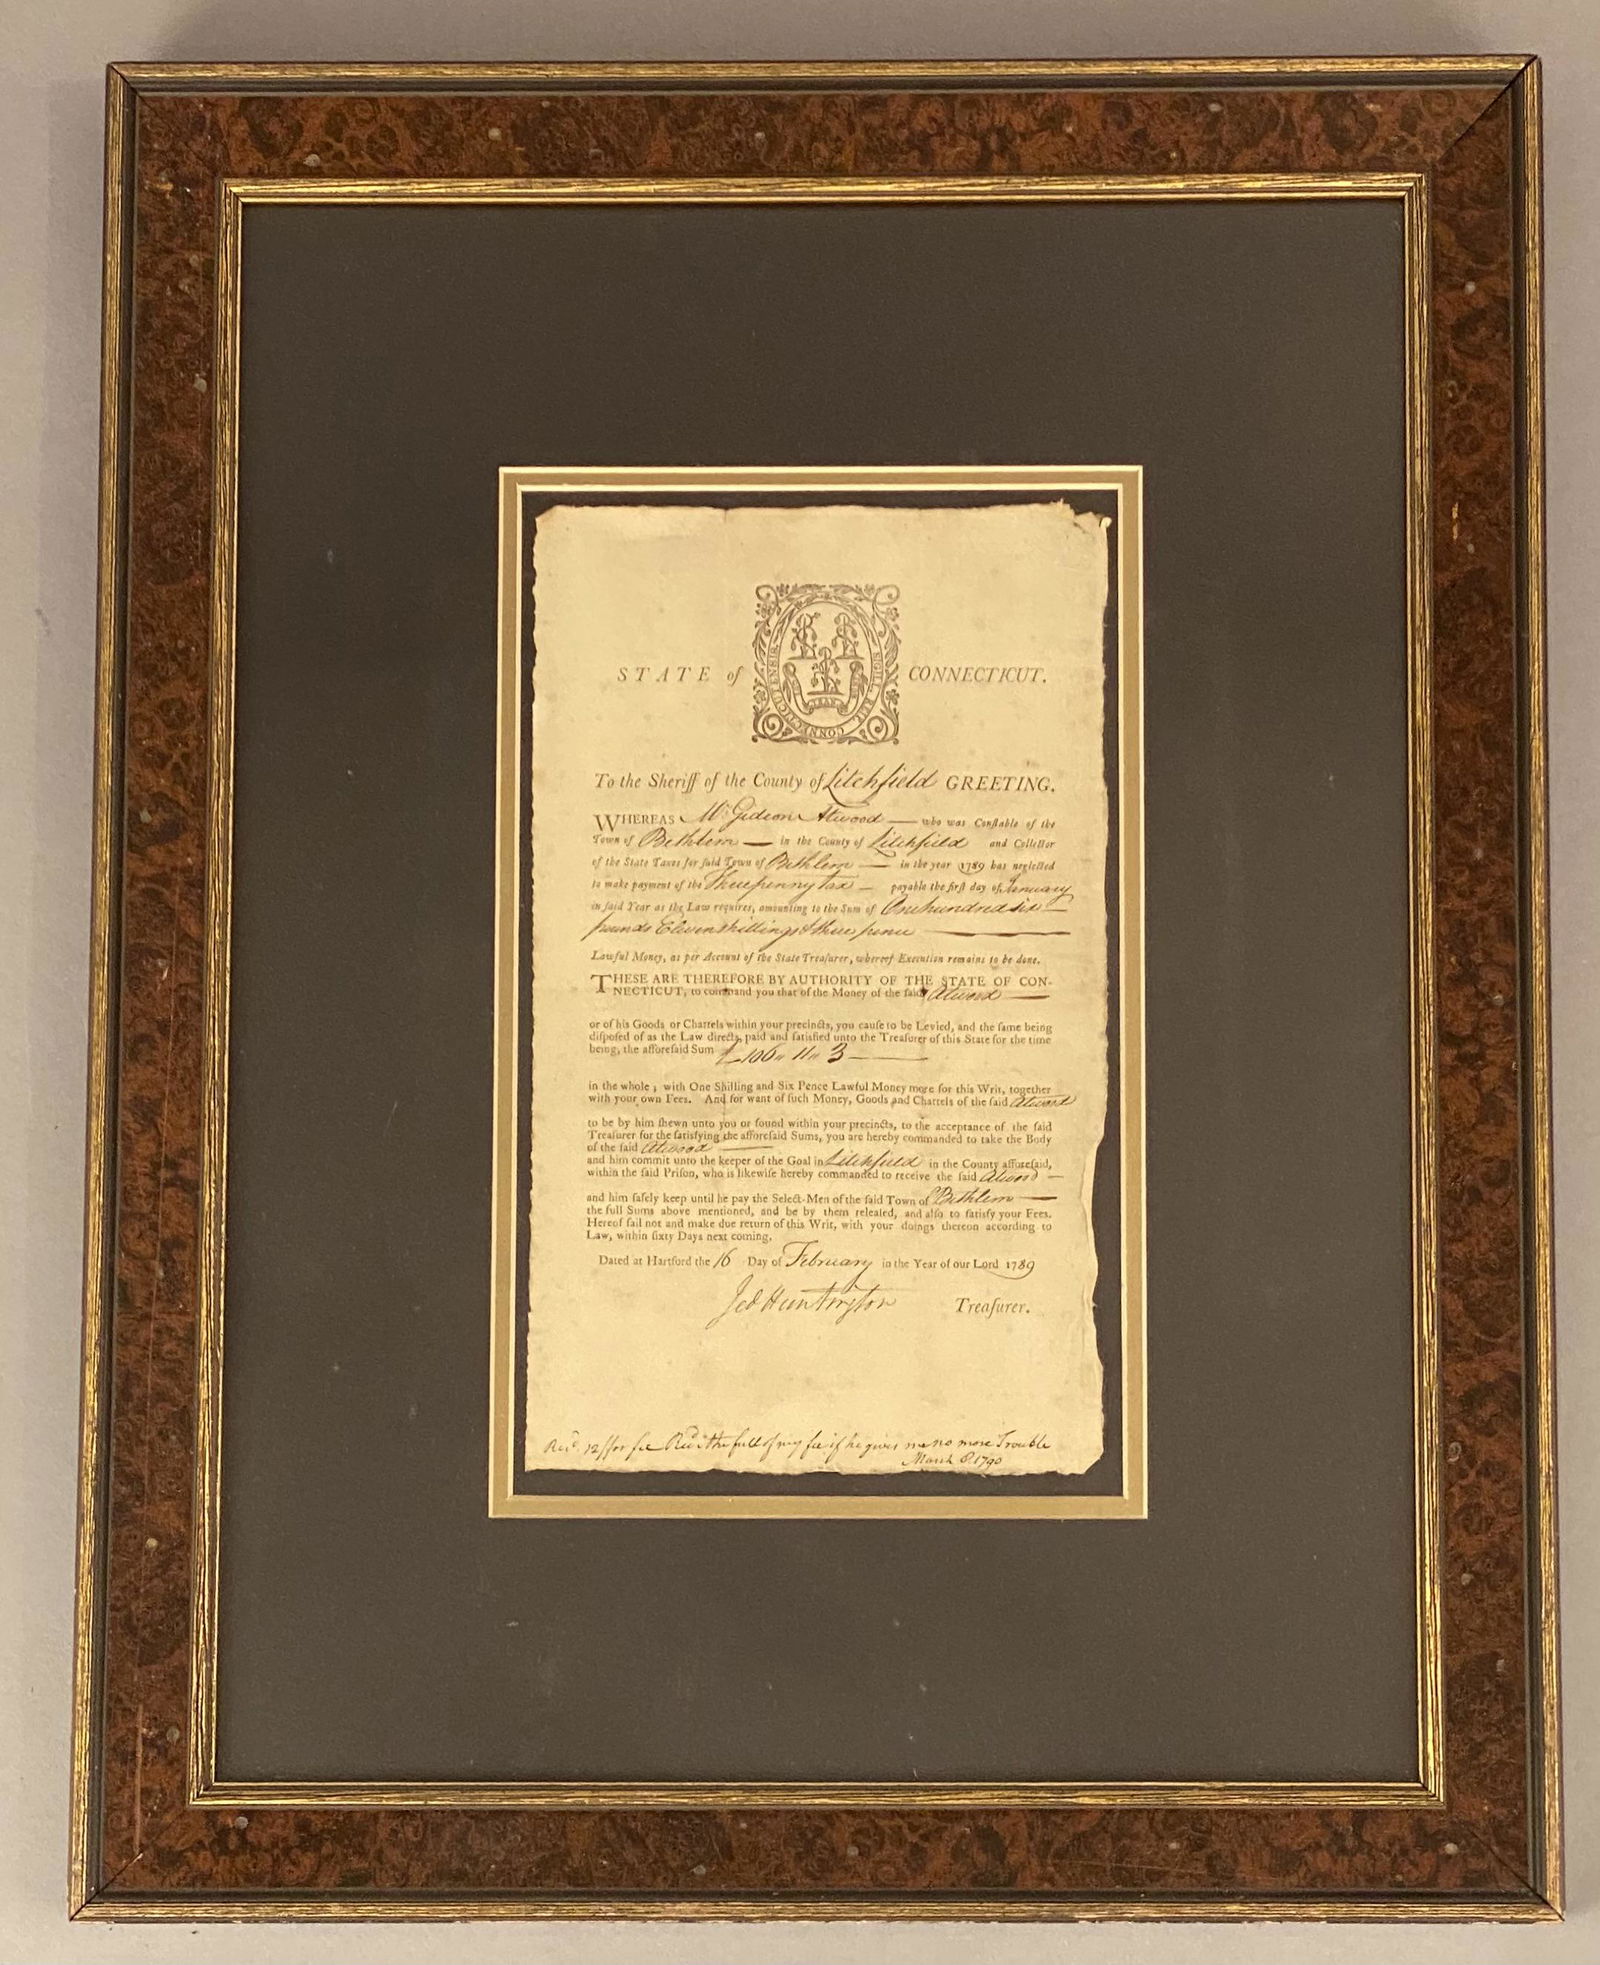 STATE of CONNECTICUT.
SIGILL. REIP. CONNECTICUTENSIS
To the Sheriff of the County of Litchfield GREETING.
WHEREAS Mr. Gideon Atwood — who was Conſtable of the
Town of Bethlem — in the County of Litchfield and Collector
of the State Taxes for ſaid Town of Bethlem — in the year 1789 has neglected
to make payment of the Threepenny tax — payable the firſt day of January
in ſaid Year as the Law requires, amounting to the Sum of One hundred six
pounds Eleven shillings & three pence —
Lawful Money, as per Account of the State Treaſurer, whereof Execution remains to be done.
THESE ARE THEREFORE BY AUTHORITY OF THE STATE OF CON-
NECTICUT, to command you that of the Money of the ſaid Atwood —
or of his Goods or Chattels within your precincts, you cauſe to be Levied, and the ſame being
diſpoſed of as the Law directs, paid and ſatisfied unto the Treaſurer of this State for the time
being, the afforeſaid Sum £106 " 11 " 3 —
in the whole; with One Shilling and Six Pence Lawful Money more for this Writ, together
with your own Fees. And for want of ſuch Money, Goods and Chattels of the ſaid Atwood
to be by him ſhewn unto you or found within your precincts, to the acceptance of the ſaid
Treaſurer for the ſatisfying the afforeſaid Sums, you are hereby commanded to take the Body
of the ſaid Atwood —
and him commit unto the keeper of the Goal in Litchfield in the County afforeſaid,
within the ſaid Priſon, who is likewiſe hereby commanded to receive the ſaid Atwood —
and him ſafely keep until he pay the Select-Men of the ſaid Town of Bethlem —
the full Sums above mentioned, and be by them releaſed, and alſo to ſatisfy your Fees.
Hereof fail not and make due return of this Writ, with your doings thereon according to
Law, within ſixty Days next coming.
Dated at Hartford the 16 Day of February in the Year of our Lord 1789
Jed Huntington Treaſurer.
Recd. 12/ for fee Recd. the full of my fee if he gives me no more Trouble
March 8 1790